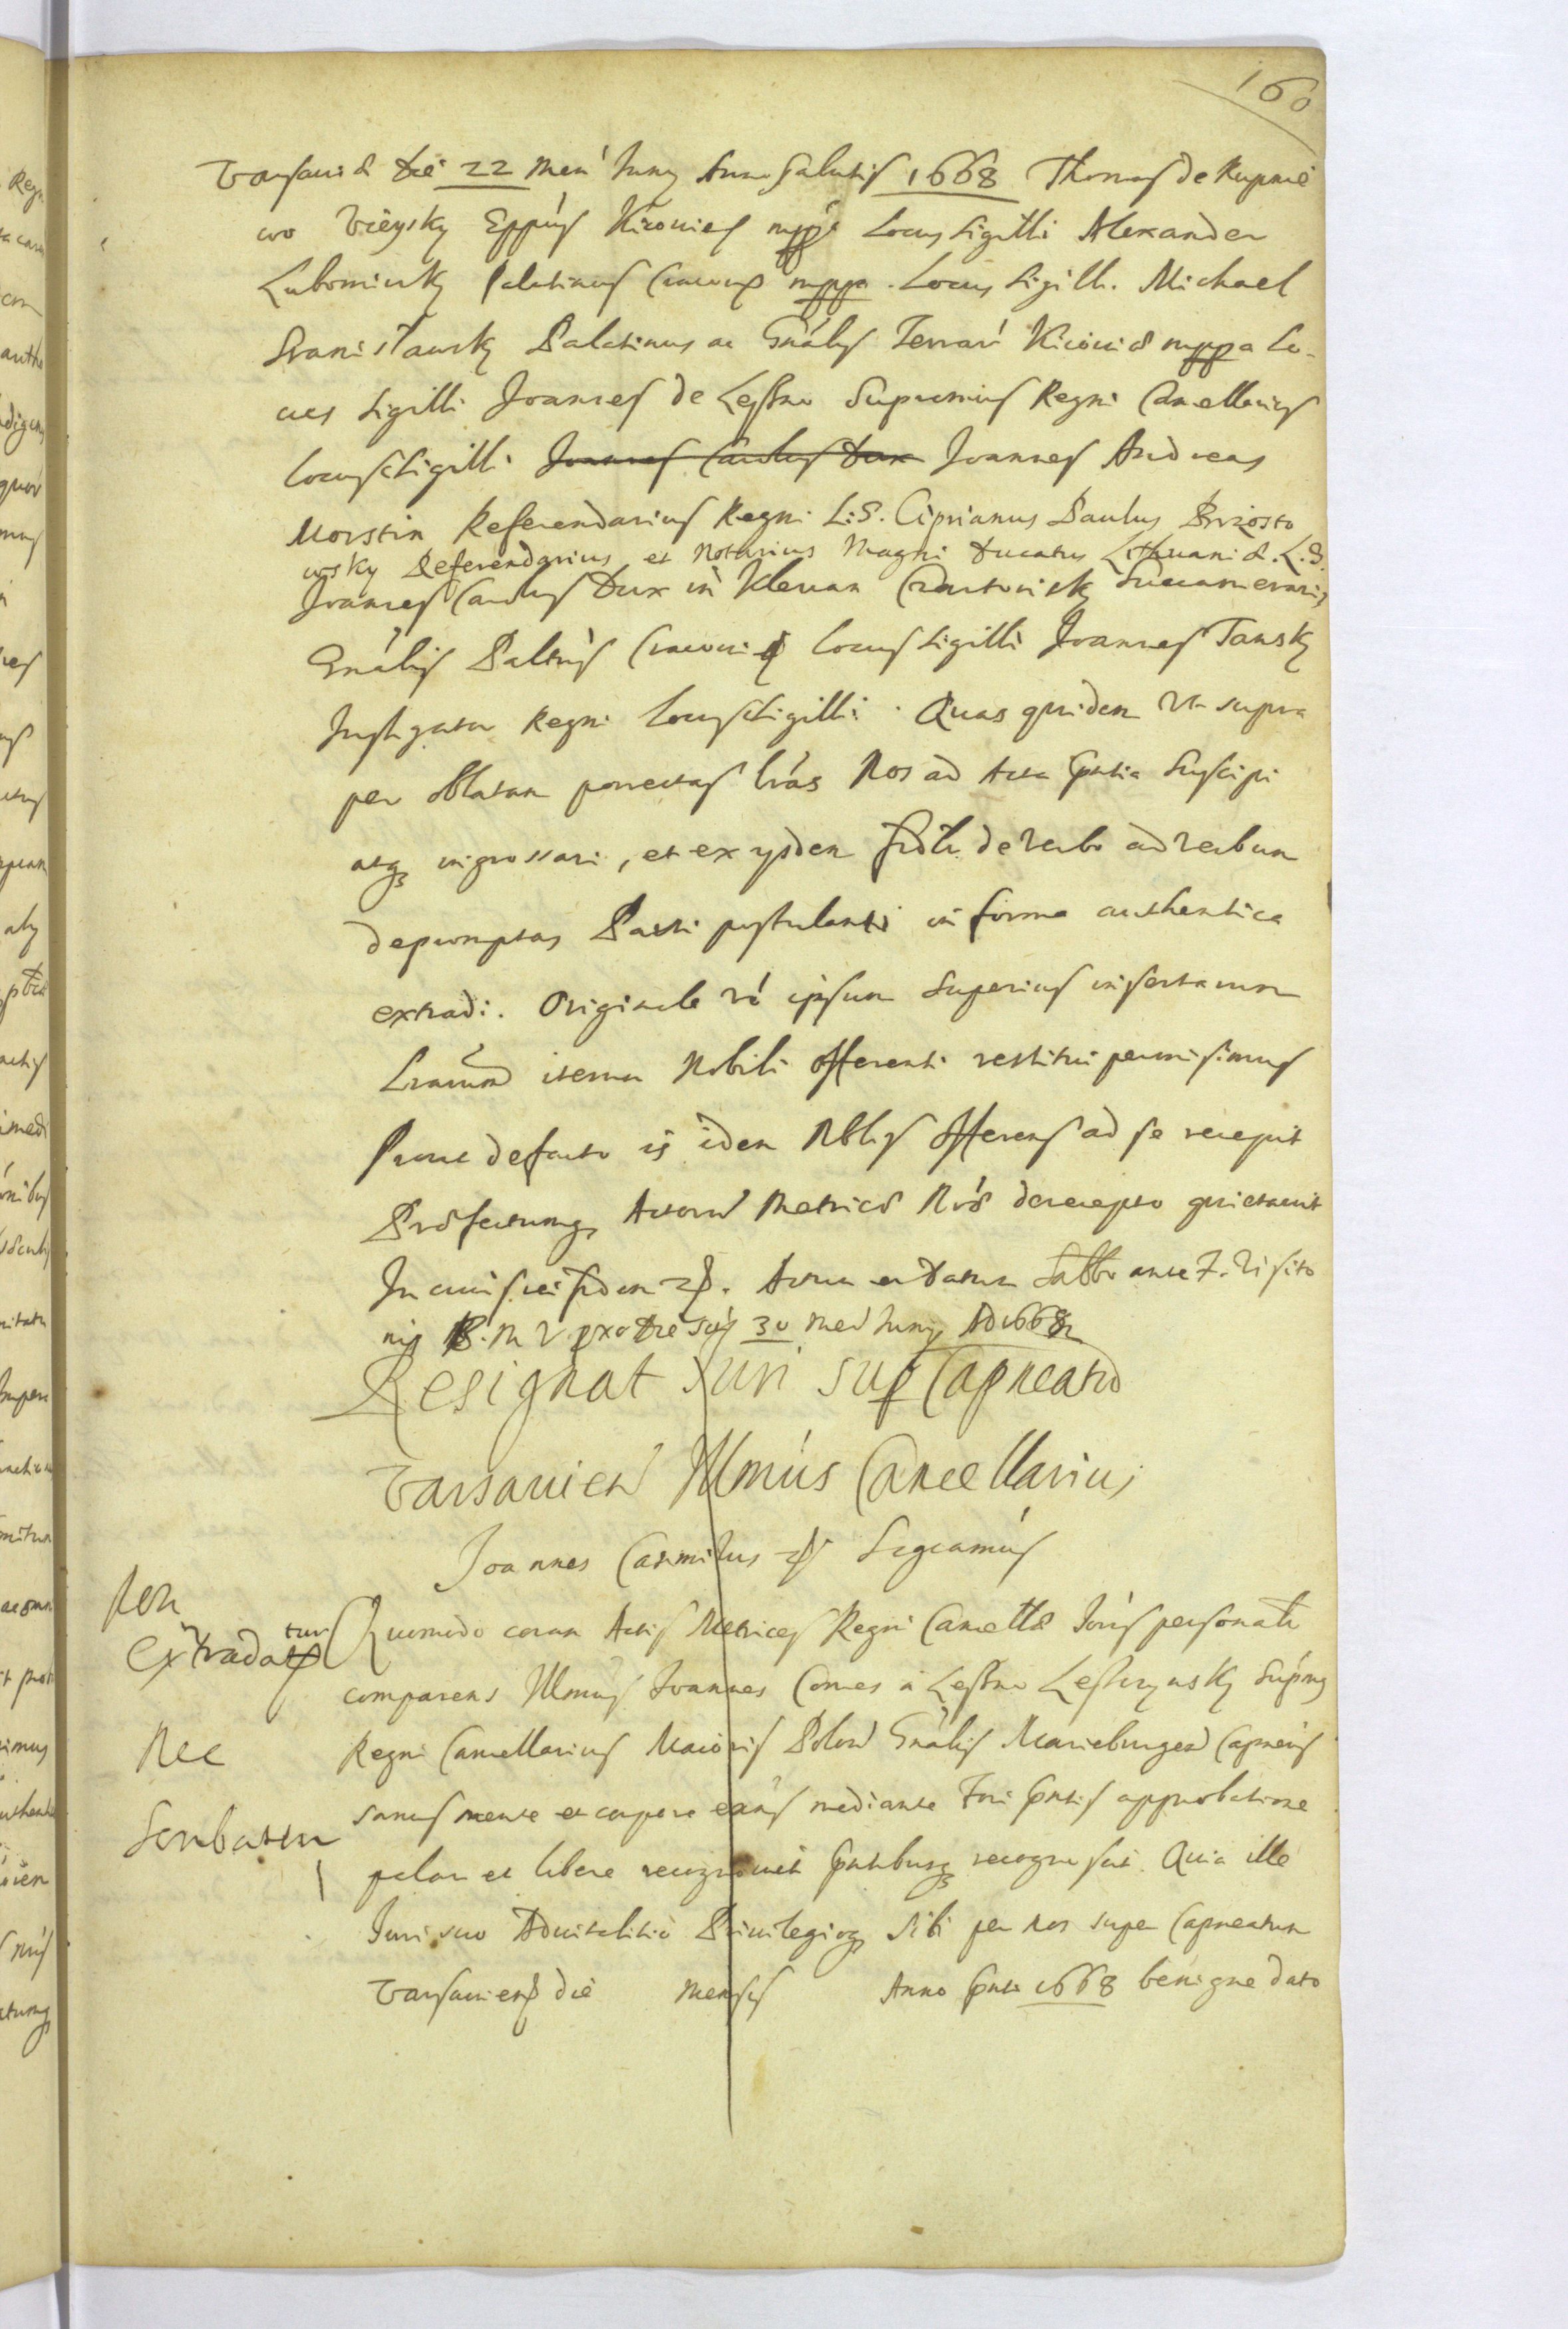 160
Varsaviæ die 22 Men' Juny Anno Salutis 1668 Thomas de Rupnie
wo Vieysky Eppus Kiiovies mppa Locus Sigilli Alexander
Lubomirsky Palatinus Cracovien mppa. Locus Sigilli. Michael
Stanisławsky Palatinus ac Gnalis Terrar' Kiioviæ mppa Lo-
cus Sigilli Joannes de Lessno Supremus Regni Cancellarius
Locus Sigilli Joannes Carolus Dux Joannes Andreas
Morstin Referendarius Regni L:S. Ciprianus Paulus Brzosto
wsky Referendarius et Notarius Magni Ducatus Lithuaniæ. L.S.
Joannes Carolus Dux in Klevan Czartorisky Succamerarius
Gnalis Paltus Cracovien Locus Sigilli Joannes Tansky
Instigator Regni Locus Sigilli. Quas quidem ut supra
per oblatam porrectas lras Nos ad Acta pntia suscipi
atq ingrossari, et ex ijsdem fidlr de verbo ad verbum
depromptas Parti postulanti in forma authentica
extradi. Originale vo ipsum superius insertarum
Lrarum iterum Nobili offerenti restitui permisimus
Prout de facto is idem Nblis offerens ad se recepit
Præfectumq Actorum Metrices Nræ de recepto quietavit
In cuius rei fidem &. Actum et Datum Sabbo ante F. Visito
nis B. M V pxo die scij 30 men Junij AD 1668
Resignat Juri sup Capneatu
Varsavien Illmus Cancellarius
Joannes Casimirus & Sigcamus
Non
extradatur
Nec
scribatur
Quomodo coram Actis Metrices Regni Cancellæ Joris personalr
comparens Illmus Joannes Comes a Lessno Lesczynsky Supmus
Regni Cancellarius Maioris Polon Gnalis Marieburgen Capneus
sanus mente et corpore exns mediante Fori pntis approbatione
palam et libere recognovit pntibusq recognoscit. Quia ille
Juri suo Advitalitio Privilegioq sibi per nos super Capneatum
Varsavien die mensis Anno pnti 1668 benigne dato